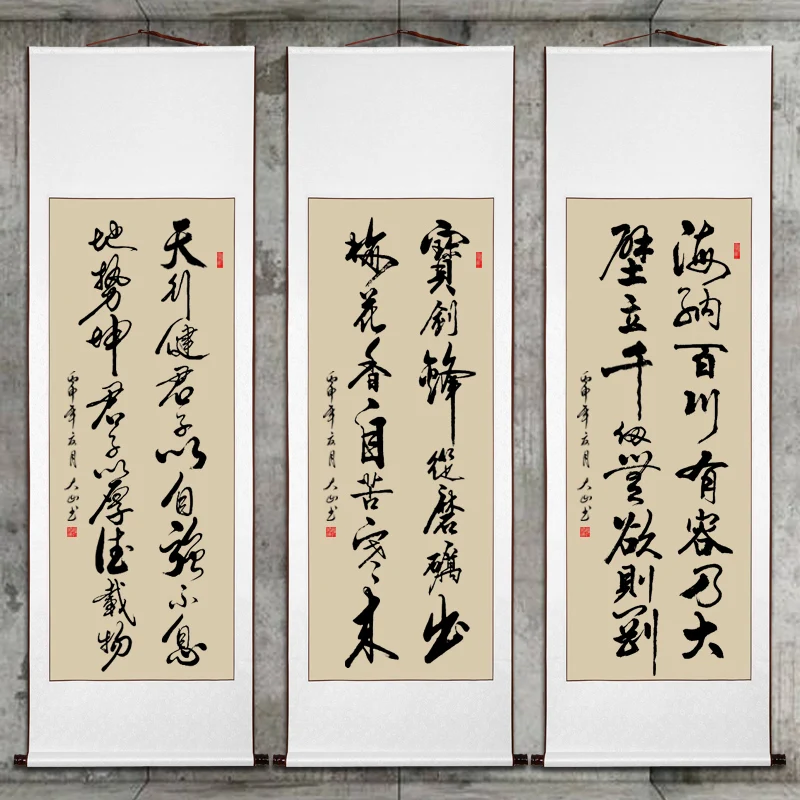 海納百川有容乃大
壁立千仞無欲則剛
丙申年亥月大山书
寶劍鋒從磨礪出
梅花香自苦寒來
丙申年亥月大山书
天行健君子以自強不息
地勢坤君子以厚德載物
丙申年亥月大山书